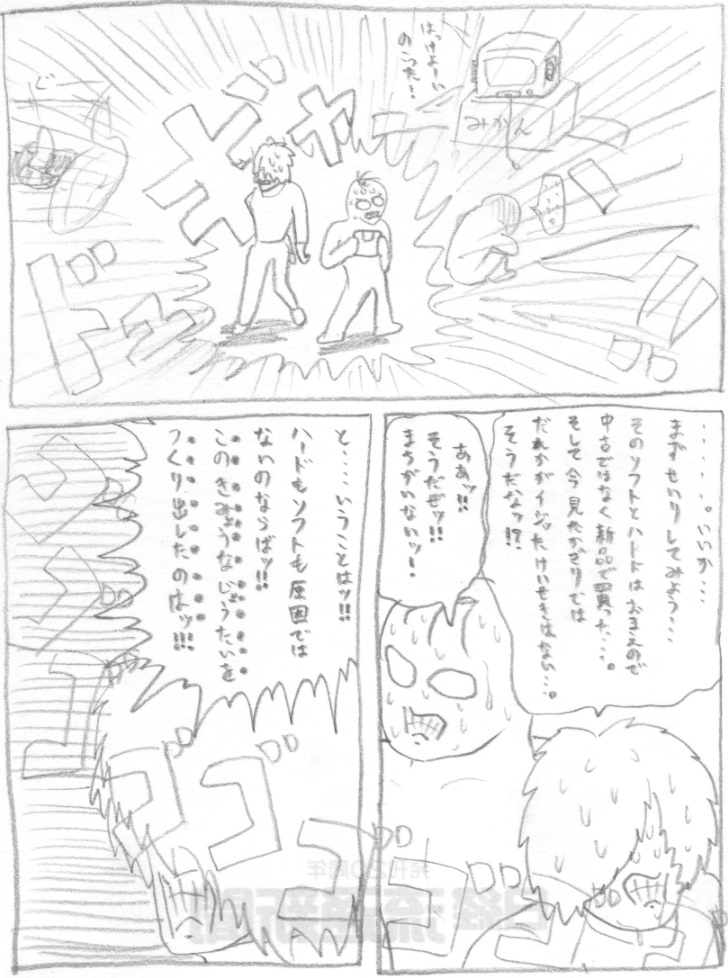 はっけよーい
のこった！
ギャ
ド
みかん
‥‥‥。いいか‥‥
まずせいりしてみよう‥‥
そのソフトとハードはおまえので
中古ではなく新品で買った‥‥。
そして今見たかぎりでは
だれかがイジッたけいせきはない‥‥。
そうだなッ!?
ああッ!!
そうだぜッ!!
まちがいないッ！
と‥‥いうことはッ!!
ハードもソフトも原因では
ないのならばッ!!
このきみょうなじょうたいを
つくり出したのはッ!!!
ゴゴゴ
ゴゴ
発刊20周年
日経流通新聞